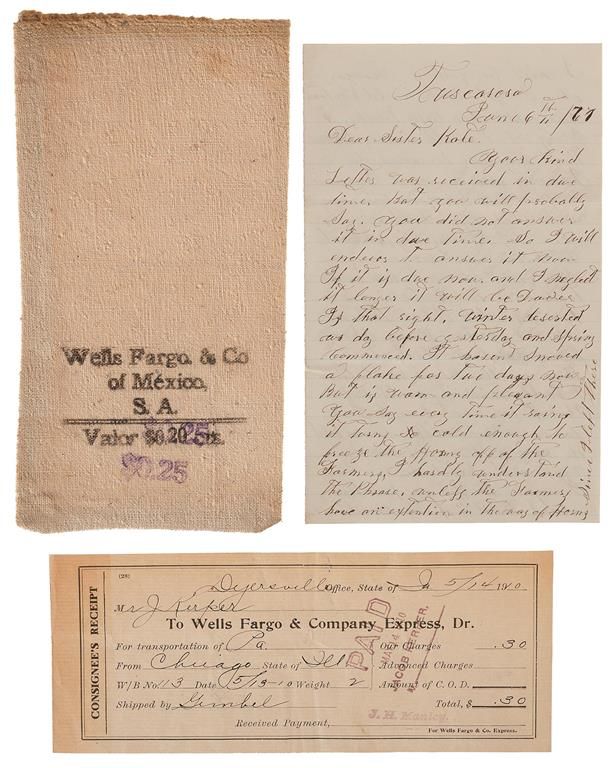 Wells Fargo & Co
of México,
S. A.
Valor $0.20 cts.
$0.25
Tuscarora
6 /77
Dear Sister Kate.
Your kind
Letter was received in due
time. But you will probably
Say. you did not answer
it in due time. So I will
endevor to answer it now
If it is due now. and I neglect
it longer it will be
Is that right. Winter deserted
us day before yesterday and Spring
Commenced. It hasent snowed
a flake for two days now
But is warm and plesent
You say every time it rains
it turns cold enough to
freeze the Horns off of the
Farmers, I hardly understand
the Phrase, unless the Farmers
have an extention in the way of Horns
Since I left there
CONSIGNEE'S RECEIPT
(28)
Dyersville Office, State of Ia 5/14 1910
Mr J. Kerper
To Wells Fargo & Company Express, Dr.
For transportation of Pa. Our Charges .30
From Chicago State of Ill Advanced Charges
W/B No. 113 Date 5/13-10 Weight 2 Amount of C. O. D.
Shipped by Gimbel Total, $ .30
Received Payment,
For Wells Fargo & Co. Express.
PAID
MAY 14 1910
JACOB KERPER.
J. H. Manley.